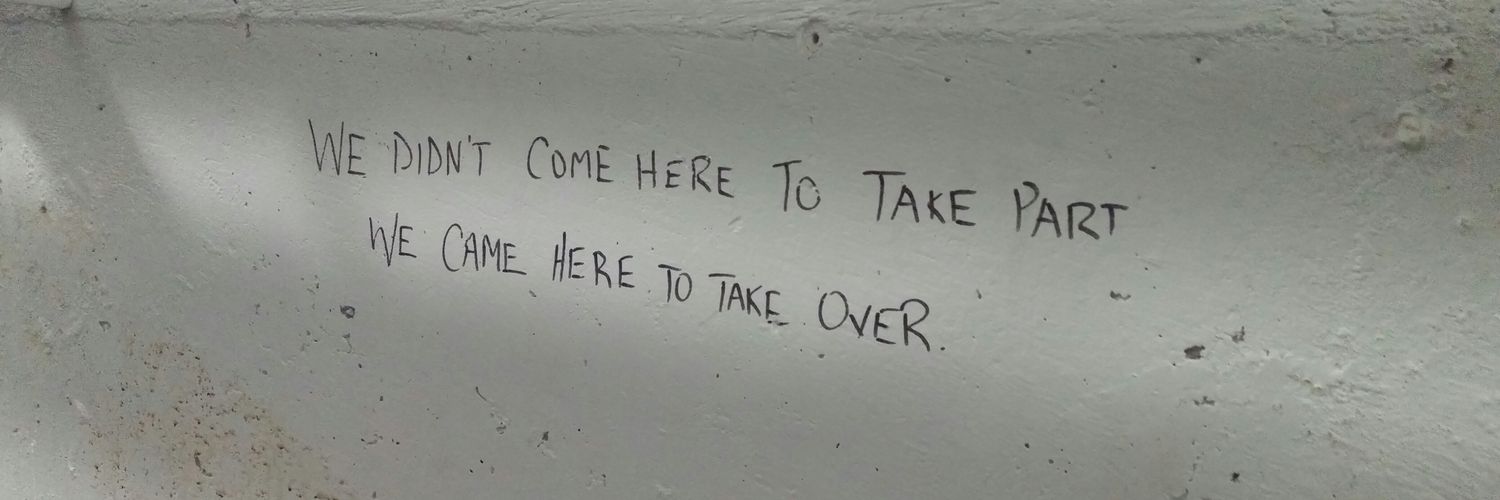 WE DIDN'T COME HERE TO TAKE PART
WE CAME HERE TO TAKE OVER.